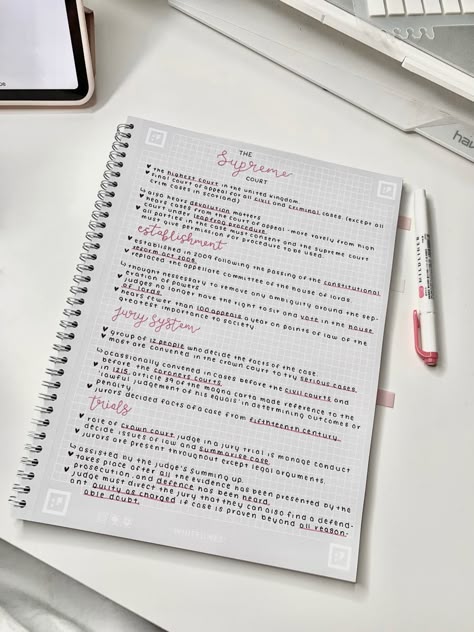 THE
Supreme
COURT
♥ the highest court in the united kingdom.
♥ final court of appeal for all civil and criminal cases (except all
crim cases in scotland)
↳ also hears devolution matters.
♥ hears cases from the court of appeal - more rarely from high
court under leapfrog procedure.
♥ all parties in the case must consent and the supreme court
must give permission for procedure to be used.
establishment
♥ established in 2009 following the passing of the constitutional
reform act 2005.
♥ replaced the appellate committee of the house of lords
↳ thought nessessary to remove any ambiguity around the sep-
eration of powers
♥ judges no longer have the right to sit and vote in the house
of lords.
♥ hears fewer than 100 appeals a year on points of law of the
greatest importance to society
jury system
♥ group of 12 people who decide the facts of the case.
♥ most are convened in the crown court to try serious cases
↳ occassionally convened in cases before the civil courts and
before the coroners courts.
♥ in 1215, article 39 of the magna carta made reference to the
'lawful judgement of his equals' in determining outcomes or
penalty
♥ jurors decided facts of a case from fifthteenth century.
trials
♥ role of crown court judge in a jury trial is manage conduct
decide issues of law and summarise case.
♥ jurors are present throughout except legal arguments.
↳ assisted by the judge's summing up.
♥ takes place after all the evidence has been presented by the
prosecution, and defence has been heard.
♥ judge must direct the jury that they can also find a defend-
ant guilty as charged if case is proven beyond all reason-
able doubt.
MILDLINER